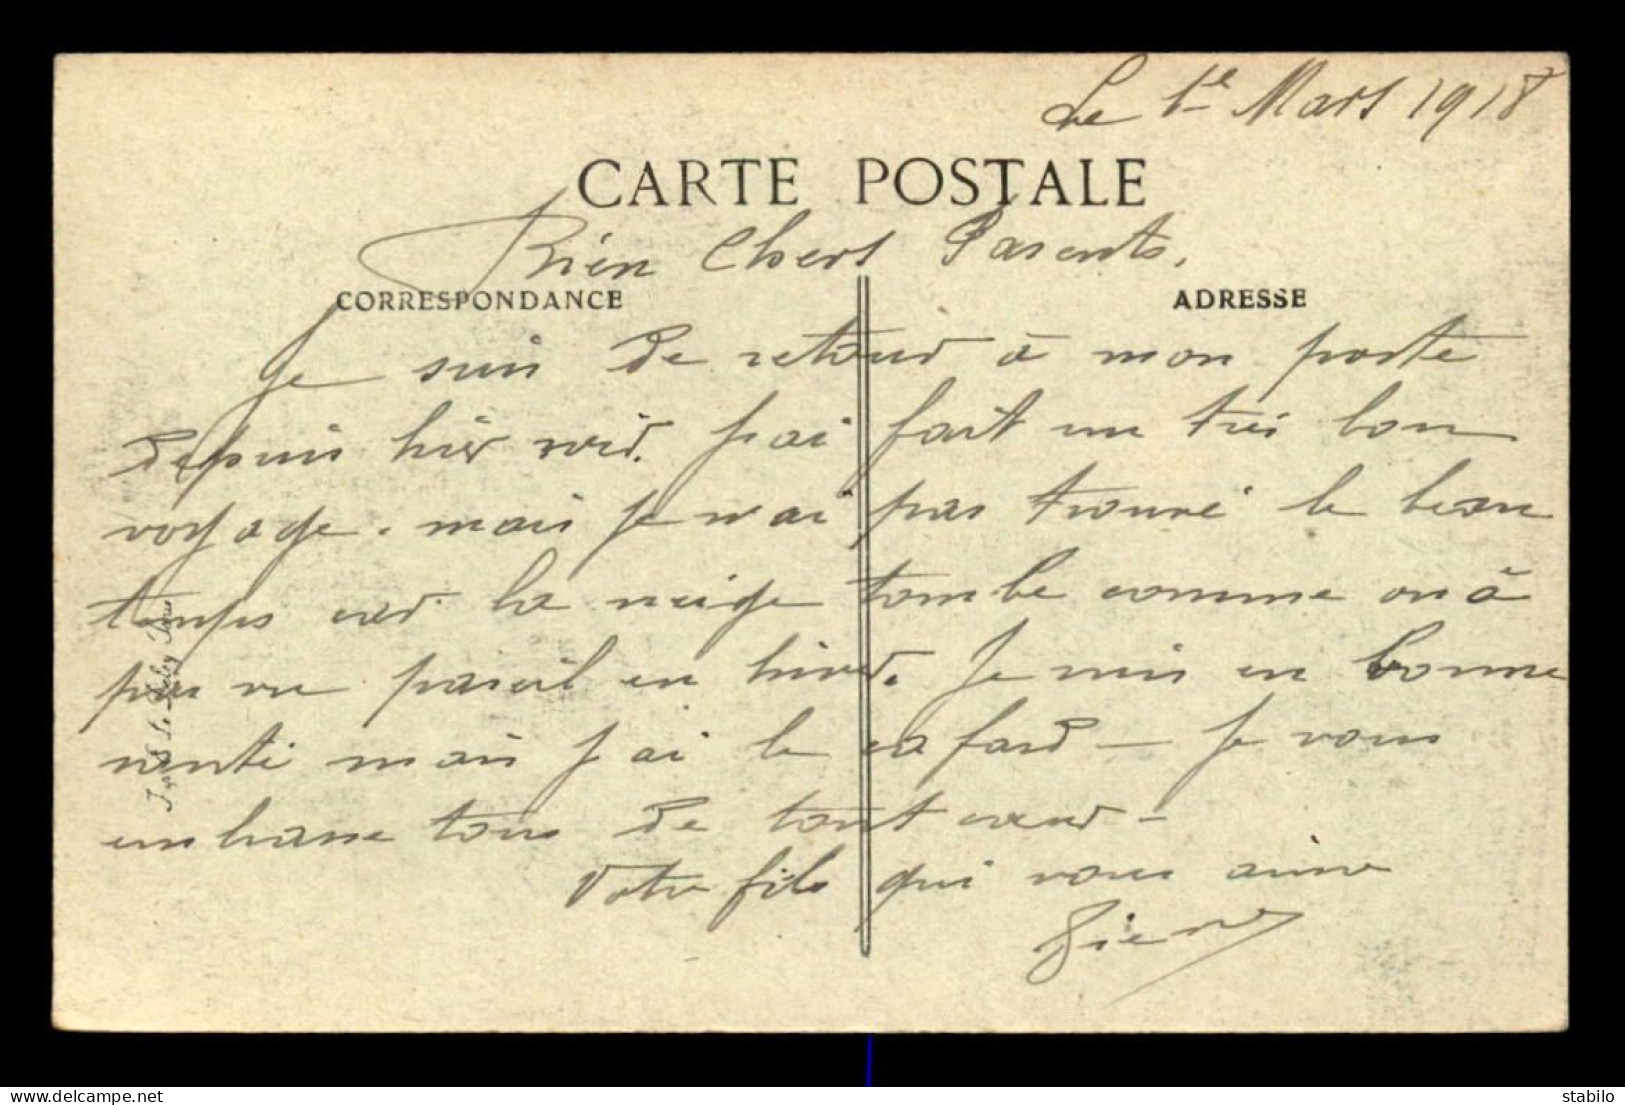 Le 1e Mars 1918
CARTE POSTALE
Bien Chers Parents,
CORRESPONDANCE
ADRESSE
Je suis de retour à mon poste
depuis hier soir. J'ai fait un très bon
voyage. mais je n'ai pas trouvé le beau
temps car la neige tombe comme on à
pas vu pareil en hiver. Je suis en bonne
santé mais j'ai le cafard — Je vous
embrasse tous de tout cœur —
Votre fils qui vous aime
delcampe.net
stabilo